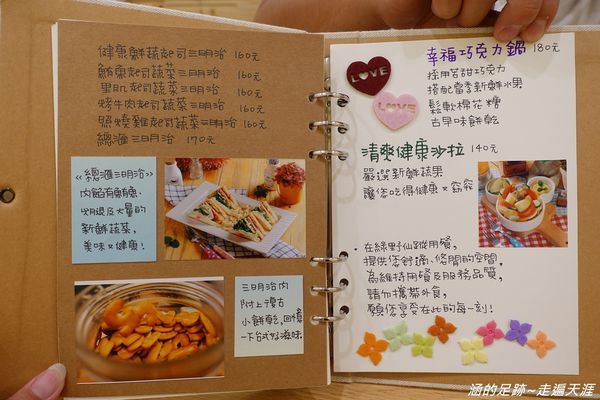 健康鮮蔬起司三明治 160元
鮪魚起司蔬菜三明治 160元
里肌起司蔬菜三明治 160元
烤牛肉起司蔬菜三明治 160元
照燒雞起司蔬菜三明治 160元
總滙三明治 170元
《總滙三明治》
內餡有鮪魚、
火腿及大量的
新鮮蔬菜,
美味又健康!
三明治內
附上懷古
小餅乾,回憶
一下台式好滋味
幸福巧克力鍋 180元
採用苦甜巧克力
搭配當季新鮮水果
鬆軟棉花糖
古早味餅乾
LOVE
LOVE
清爽健康沙拉 140元
嚴選新鮮蔬果
讓您吃得健康又窈窕
·在綠野仙蹤用餐,
提供您舒適、悠閒的空間,
為維持用餐及服務品質,
請勿攜帶外食,
願您享受在此的每一刻!
涵的足跡~走遍天涯